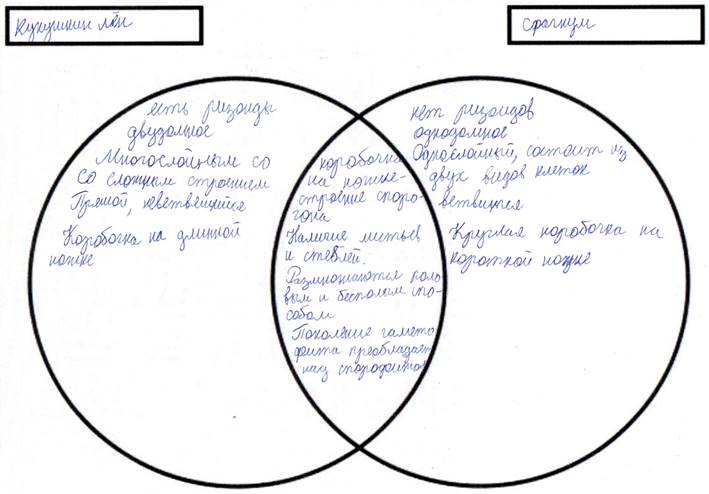 Кукушкин лён
сфагнум
есть ризоиды
двудомное
Многослойным со
со сложным строением
Прямой, неветвящийся
Коробочка на длинной
ножке
коробочка
на ножке-
строение споро-
гона
Наличие листьев
и стеблей.
Размножаются поло
вым и бесполым спо-
собом
Поколение гамето
фита преобладает
над спорофитом
нет ризоидов
однодомное
Однослойный, состоит из
двух видов клеток
ветвится
Круглая коробочка на
короткой ножке